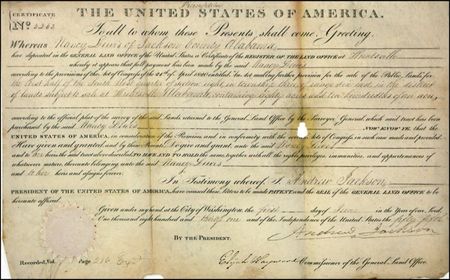 Preemption
THE UNITED STATES OF AMERICA.
CERTIFICATE
No. 2262
To all to whom these Presents shall come, Greeting:
Whereas Nancy of Jackson County Alabama
have deposited in the GENERAL LAND OFFICE of the United States, a Certificate of the REGISTER OF THE LAND OFFICE at Huntsville
whereby it appears that full payment has been made by the said Nancy
according to the provisions of the Act of Congress of the 24th of April 1820, entitled "An Act making further provision for the sale of the Public Lands, for
the East half of the South West quarter of section eight in township range east in the district
of lands subject to sale at Huntsville Alabama containing eighty acres and hundredths of an acre,
according to the official plat of the survey of the said lands returned to the General Land Office by the Surveyor General, which said tract has been
purchased by the said Nancy NOW KNOW YE, that the
UNITED STATES OF AMERICA, in consideration of the Premises, and in conformity with the several acts of Congress, in such case made and provided,
Have given and granted, and by these Presents Do give and grant, unto the said Nancy
and to her heirs the said tract above described; TO HAVE AND TO HOLD the same, together with all the rights, privileges, immunities, and appurtenances of
whatsoever nature, thereunto belonging, unto the said Nancy
and to her heirs and assigns forever.
In Testimony whereof, I, Andrew Jackson
PRESIDENT OF THE UNITED STATES OF AMERICA, have caused these Letters to be made PATENT, and the SEAL of the GENERAL LAND OFFICE to be hereunto affixed.
Given under my hand at the City of Washington, the first day of in the year of our Lord
one thousand eight hundred and thirty one and of the Independence of the United States the fifty fifth
BY THE PRESIDENT,
Andrew Jackson
Elijah Hayward Commissioner of the General Land Office.
Recorded, Vol. 5 page 216